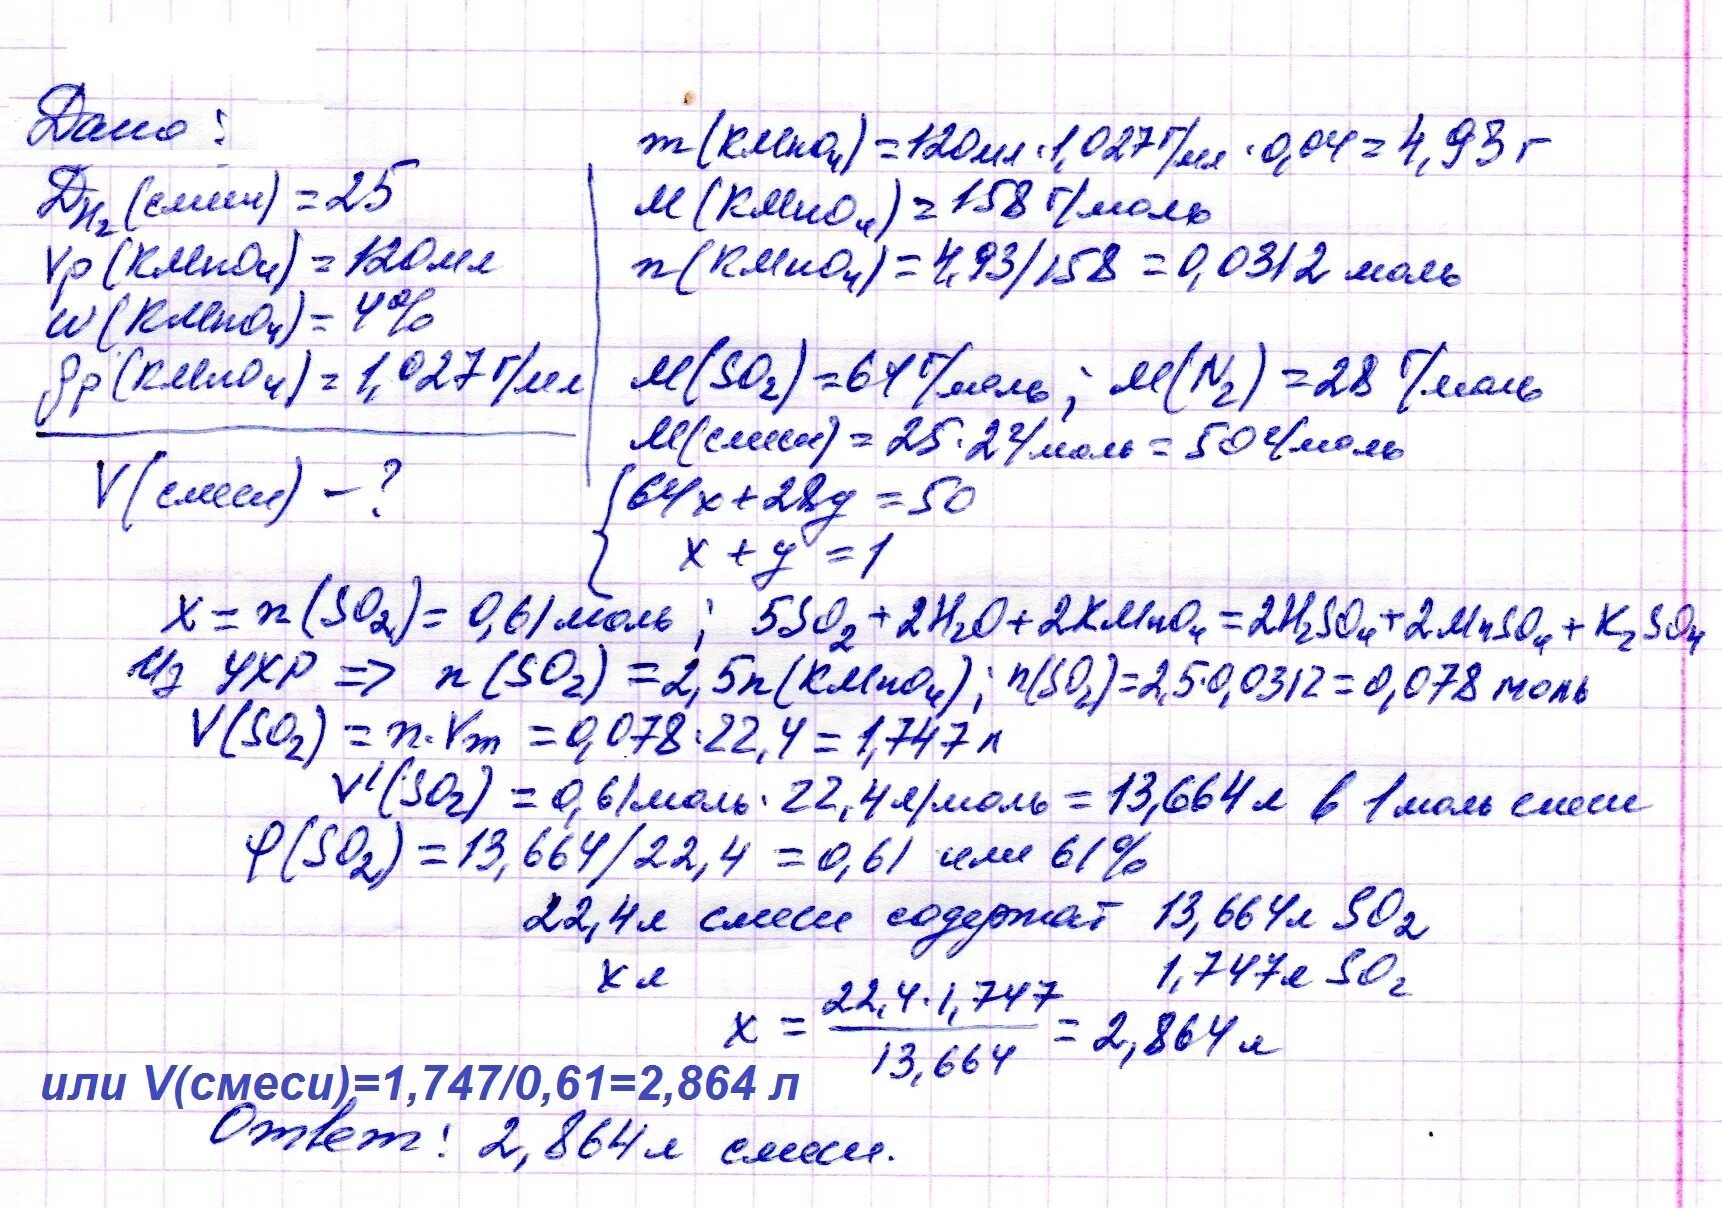 Дано:
D_H₂(смеси) = 25
Vр(KMnO₄) = 120 мл
w(KMnO₄) = 4%
ρр(KMnO₄) = 1,027 г/мл
V(смеси) – ?
m(KMnO₄) = 120 мл · 1,027 г/мл · 0,04 = 4,93 г
M(KMnO₄) = 158 г/моль
n(KMnO₄) = 4,93/158 = 0,0312 моль
M(SO₂) = 64 г/моль; M(N₂) = 28 г/моль
M(смеси) = 25·2 г/моль = 50 г/моль
{64x + 28y = 50
x + y = 1
x = n(SO₂) = 0,61 моль; 5SO₂ + 2H₂O + 2KMnO₄ = 2H₂SO₄ + 2MnSO₄ + K₂SO₄
Из УХР => n(SO₂) = 2,5n(KMnO₄); n(SO₂) = 2,5·0,0312 = 0,078 моль
V(SO₂) = n·Vm = 0,078·22,4 = 1,747 л
V'(SO₂) = 0,61 моль · 22,4 л/моль = 13,664 л в 1 моль смеси
φ(SO₂) = 13,664/22,4 = 0,61 или 61%
22,4 л смеси содержат 13,664 л SO₂
x л 1,747 л SO₂
x = 22,4·1,747 / 13,664 = 2,864 л
или V(смеси)=1,747/0,61=2,864 л
Ответ: 2,864 л смеси.